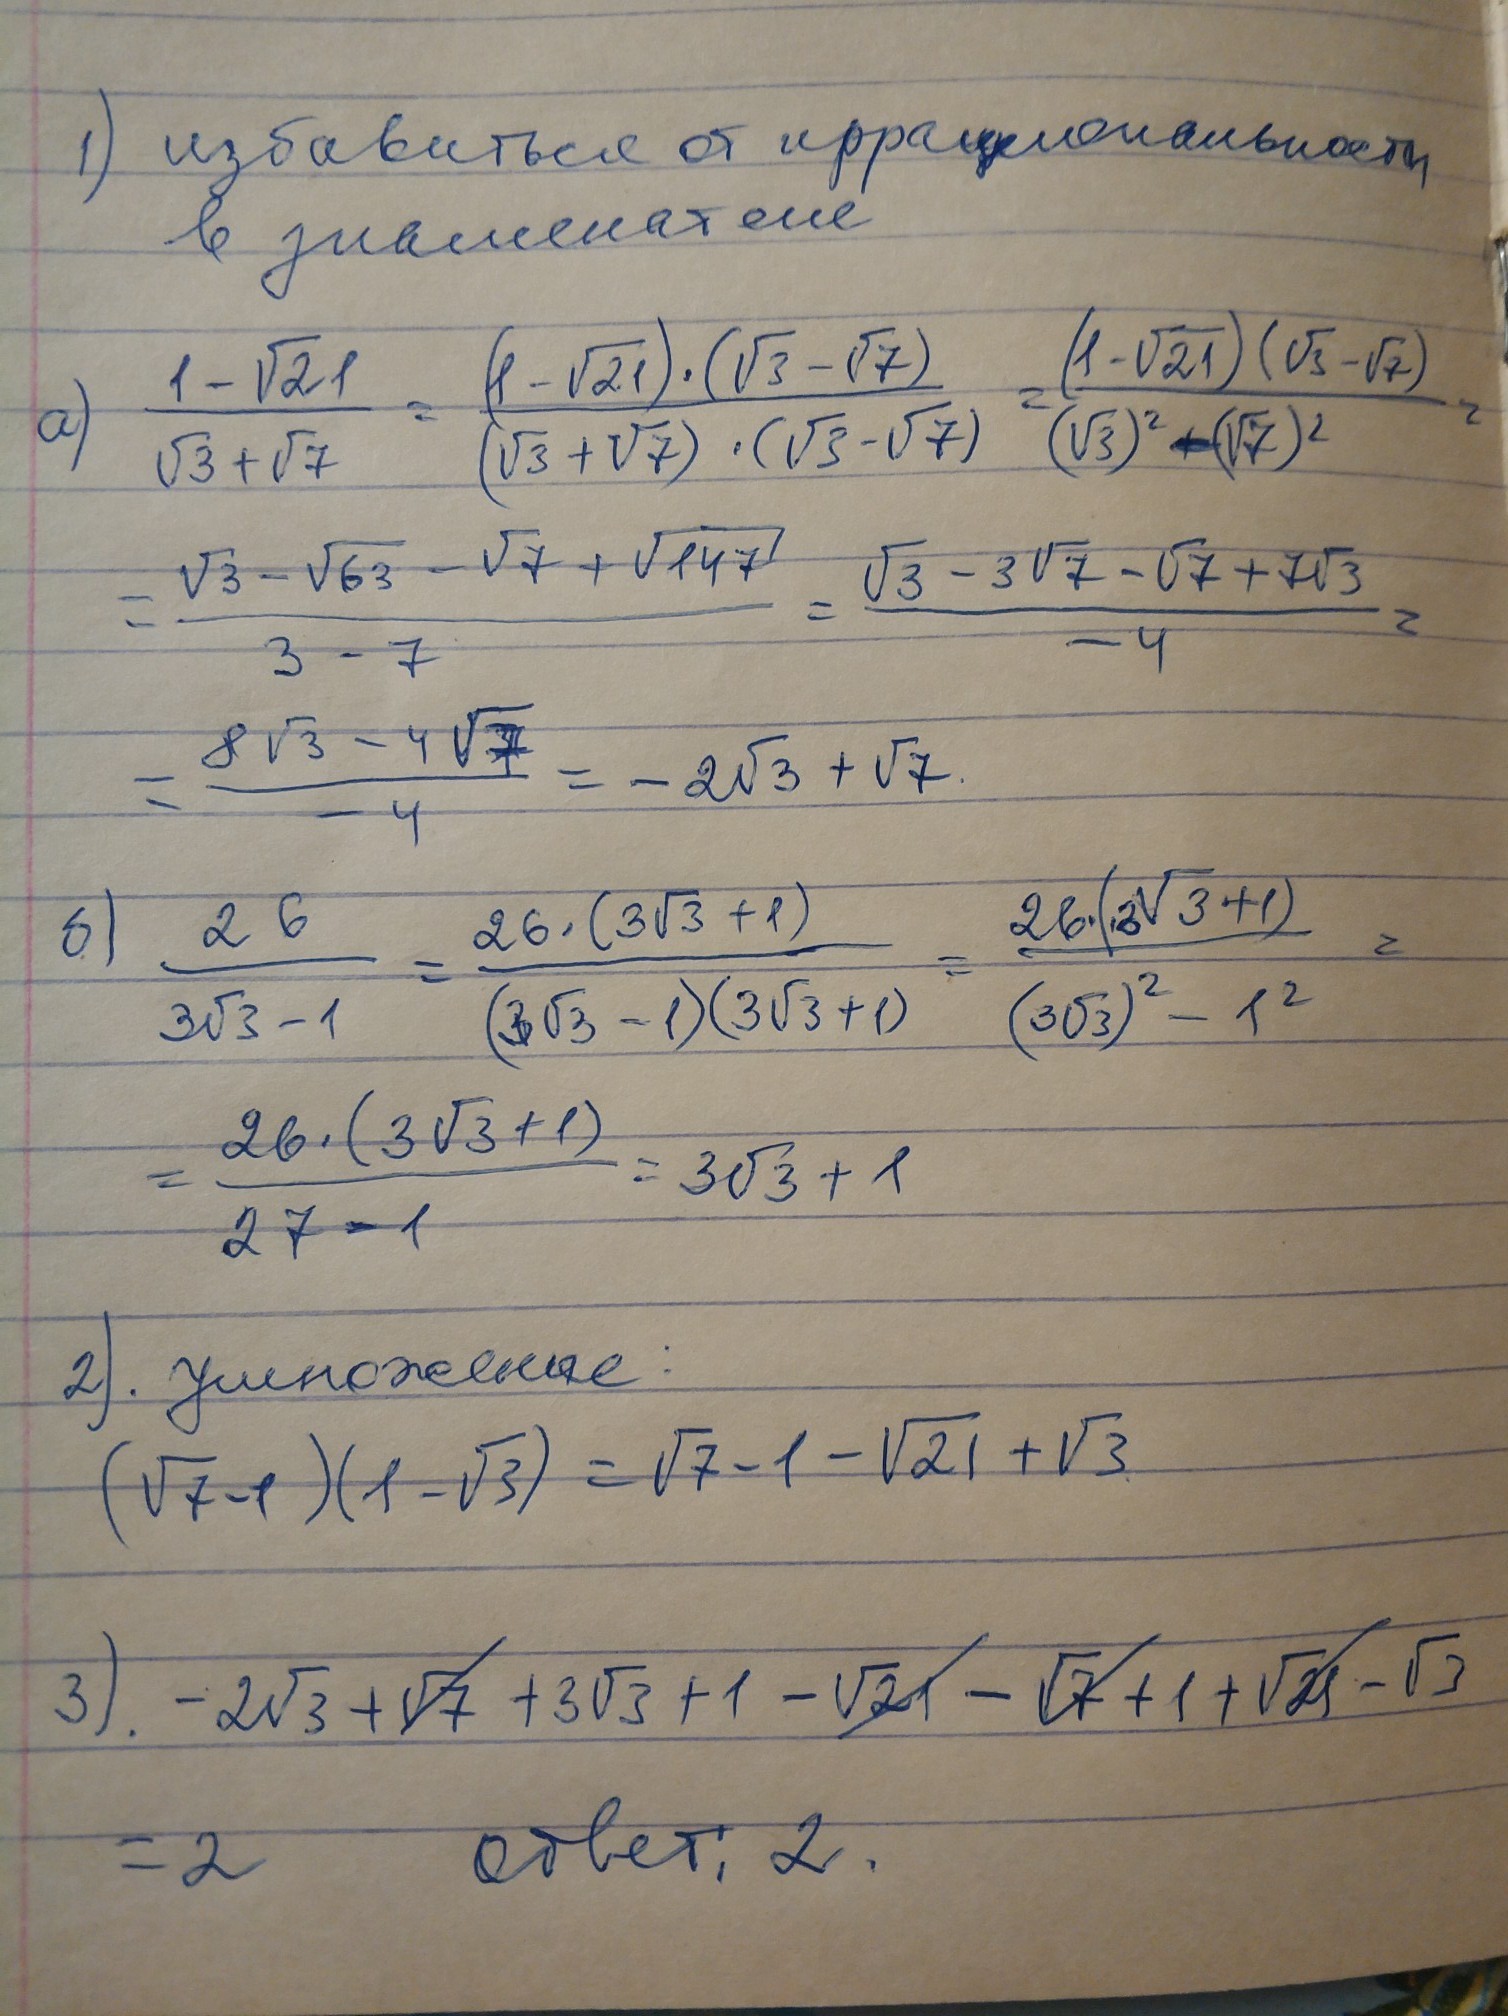 1) избавиться от иррациональности
в знаменателе
а) (1-√21)/(√3+√7) = ((1-√21)·(√3-√7))/((√3+√7)·(√3-√7)) = ((1-√21)(√3-√7))/((√3)²-(√7)²) =
= (√3-√63-√7+√147)/(3-7) = (√3-3√7-√7+7√3)/(-4) =
= (8√3-4√7)/(-4) = -2√3+√7.
б) 26/(3√3-1) = (26·(3√3+1))/((3√3-1)(3√3+1)) = (26·(3√3+1))/((3√3)²-1²) =
= (26·(3√3+1))/(27-1) = 3√3+1
2). умножение:
(√7-1)(1-√3) = √7-1-√21+√3
3). -2√3+√7+3√3+1-√21-√7+1+√21-√3
=2 ответ: 2.